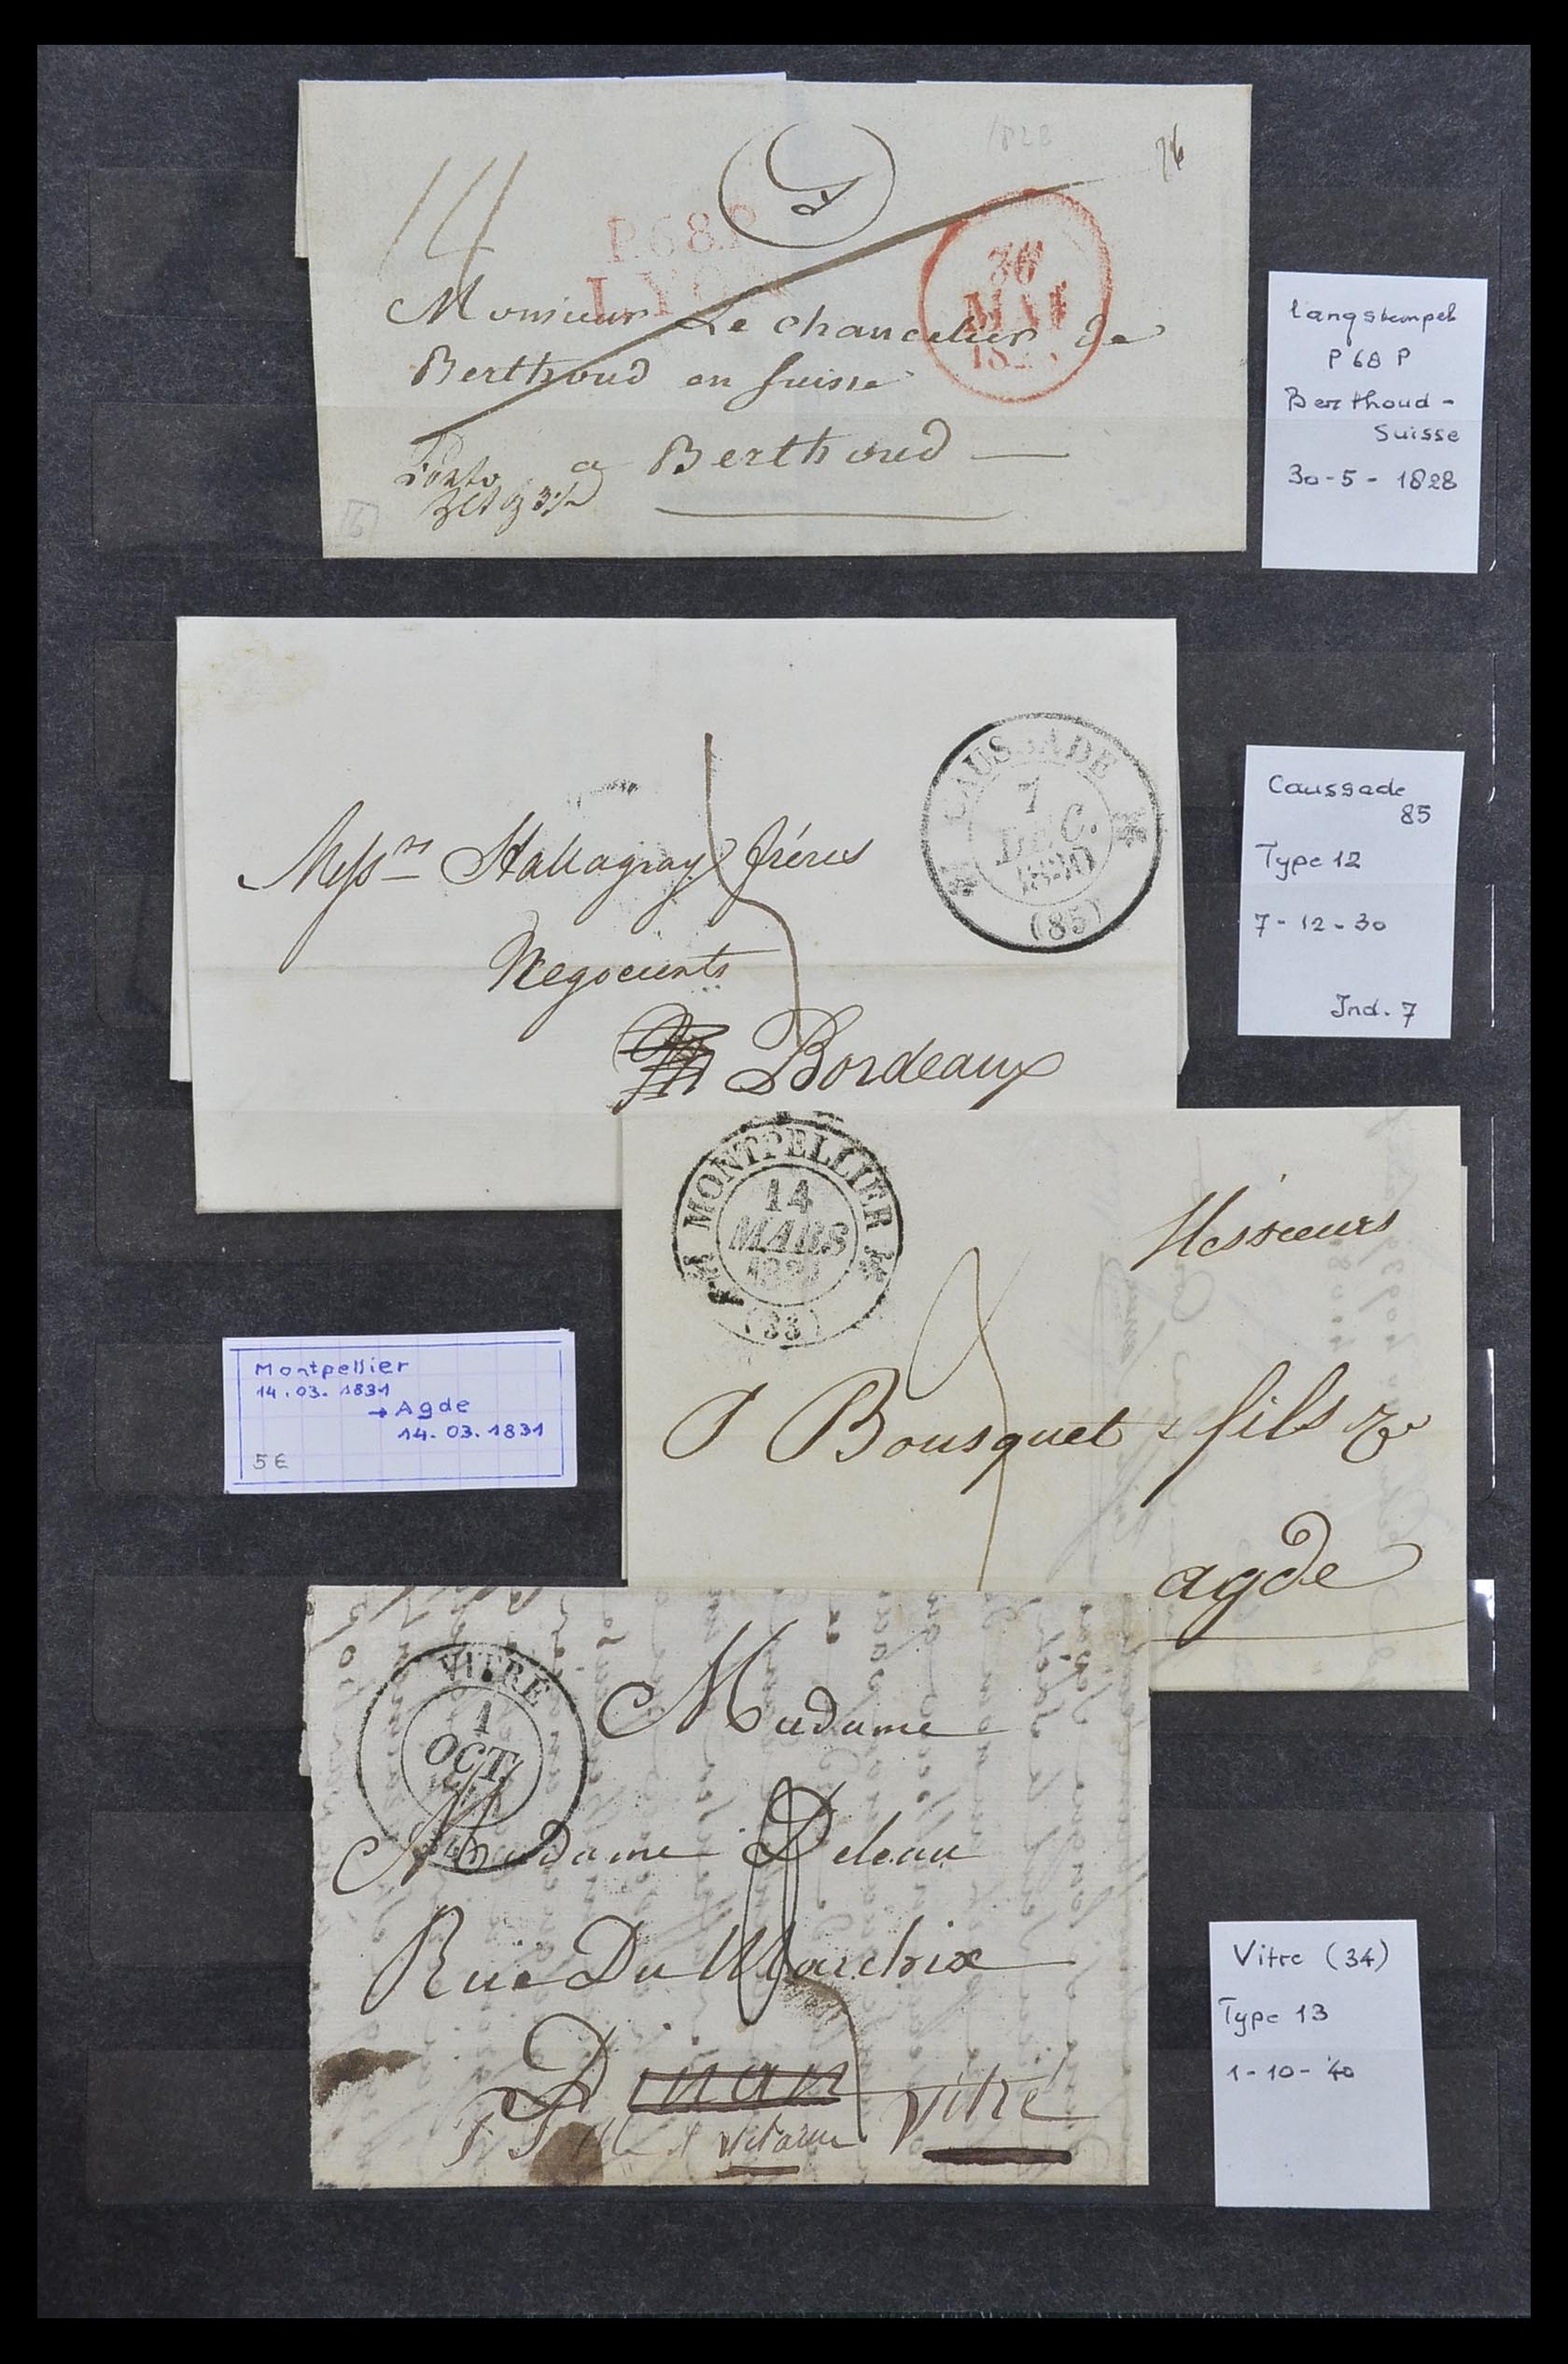 1828
14
26
P.68.P
LYON
30
MAI
Monsieur Le chancelier de
Berthoud en Suisse
a Berthoud
Porto
langstempel
P 68 P
Berthoud -
Suisse
30-5-1828
CAUSSADE
7
DEC.
1830
(85)
fréres
Negocients
Bordeaux
Caussade
85
Type 12
7-12-30
Ind. 7
MONTPELLIER
14
MARS
(33)
Messieurs
Bousquet & fils
agde
Montpellier
14.03.1831
→ Agde
14.03.1831
5€
VITRE
1
OCT.
Madame
Madame Deleau
Rue Du
Dinan
Vitré
Vitre (34)
Type 13
1-10-'40